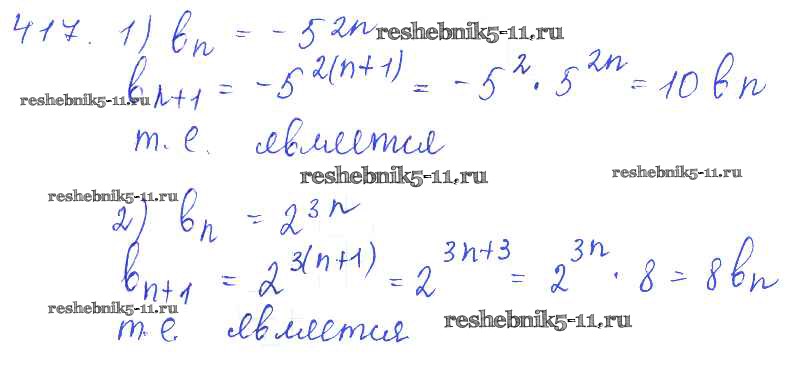 417. 1) bₙ = -5²ⁿ reshebnik5-11.ru
bₙ₊₁ = -5²⁽ⁿ⁺¹⁾ = -5² · 5²ⁿ = 10 bₙ
reshebnik5-11.ru
т. е. является
reshebnik5-11.ru reshebnik5-11.ru
reshebnik5-11.ru
2) bₙ = 2³ⁿ
bₙ₊₁ = 2³⁽ⁿ⁺¹⁾ = 2³ⁿ⁺³ = 2³ⁿ · 8 = 8bₙ
reshebnik5-11.ru
т. е. является reshebnik5-11.ru